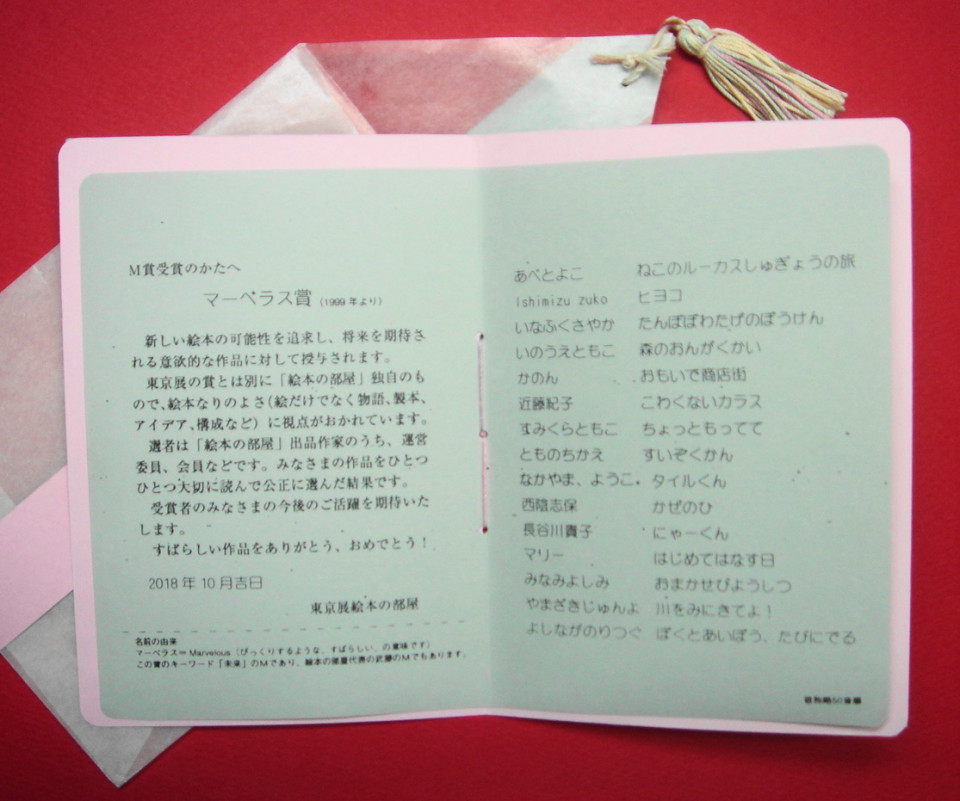 M賞受賞のかたへ
マーベラス賞(1999年より)
新しい絵本の可能性を追求し、将来を期待さ
れる意欲的な作品に対して授与されます。
東京展の賞とは別に「絵本の部屋」独自のも
ので、絵本なりのよさ(絵だけでなく物語、製本、
アイデア、構成など)に視点がおかれています。
選者は「絵本の部屋」出品作家のうち、運営
委員、会員などです。みなさまの作品をひとつ
ひとつ大切に読んで公正に選んだ結果です。
受賞者のみなさまの今後のご活躍を期待いた
します。
すばらしい作品をありがとう、おめでとう!
2018年10月吉日
東京展絵本の部屋
名前の由来
マーベラス=Marvelous(びっくりするような、すばらしい、の意味です)
この賞のキーワード「未来」のMであり、絵本の部屋代表の武藤のMでもあります。
あべとよこ ねこのルーカスしゅぎょうの旅
Ishimizu zuko ヒヨコ
いなふくさやか たんぽぽわたげのぼうけん
いのうえともこ 森のおんがくかい
かのん おもいで商店街
近藤紀子 こわくないカラス
すみくらともこ ちょっともってて
とものちかえ すいぞくかん
なかやま、ようこ・ タイルくん
西陰志保 かぜのひ
長谷川貴子 にゃーくん
マリー はじめてはなす日
みなみよしみ おまかせびようしつ
やまざきじゅんよ 川をみにきてよ!
よしながのりつぐ ぼくとあいぼう、たびにでる